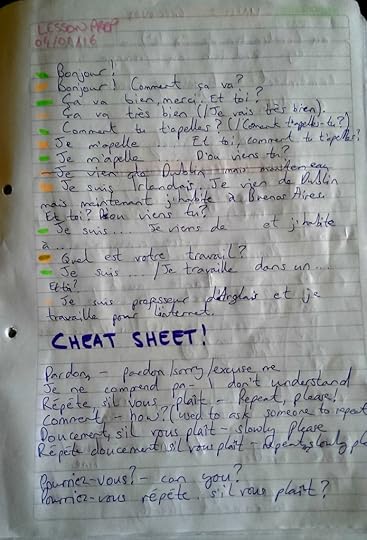 LESSON PREP
04/01/16
Bonjour!
Bonjour! Comment ça va?
Ça va bien, merci. Et toi?
Ça va très bien (/Je vais très bien).
Comment tu t'apelles? (/Coment t'apelles-tu?)
Je m'apelle .... Et toi, comment tu t'apelles?
Je m'apelle .... D'ou viens tu?
Je vien de Dublin mais maintenant
Je suis Irlandais. Je vien de Dublin
mais maintenant j'habite à Buenos Aires.
Et toi? D'ou viens tu?
Je suis.... Je viens de ... et j'habite
à ...
Quel est votre travail?
Je suis .... /Je travaille dans un....
Et toi?
Je suis professeur d'Anglais et je
travaille pour l'internet.
CHEAT SHEET!
Pardon, - pardon/sorry/excuse me
Je ne comprend pa- I don't understand
Répéte, s'il vous plaît - Repeat, please!
Comment, - how? (used to ask someone to repeat
Doucement, s'il vous plaît - slowly please
Répéte doucement s'il vous plaît - repeat, slowly pl
Pourriez-vous? - can you?
Pourriez-vous répéte s'il vous plaît?